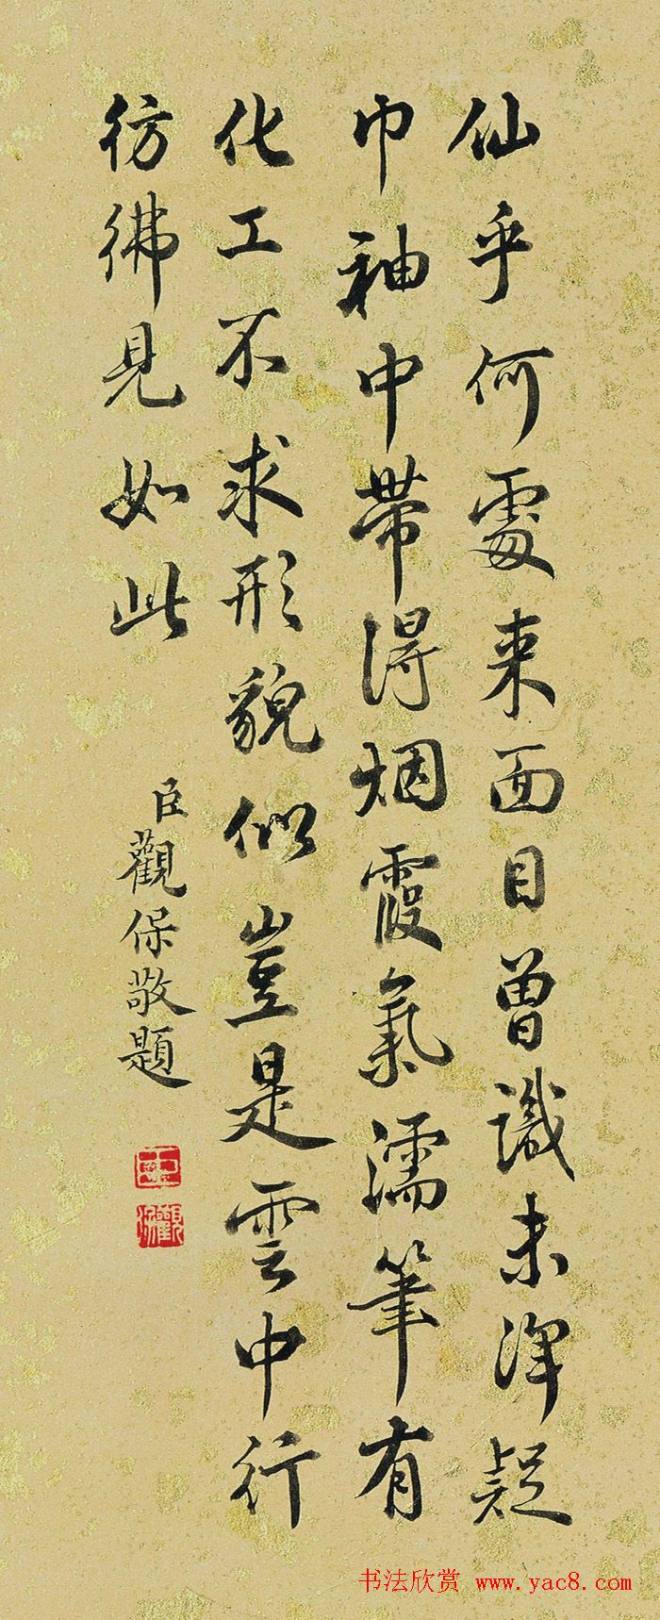 仙乎何處来面目曾識未渾疑
巾袖中帶得烟霞氣濡筆有
化工不求形貌似豈是雲中行
彷彿見如此
臣觀保敬題
书法欣赏 www.yac8.com